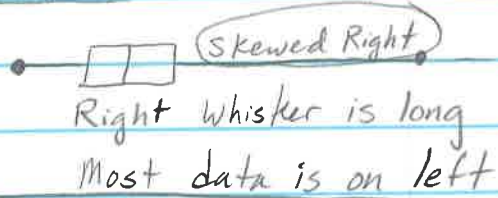 Skewed Right
Right Whisker is long
Most data is on left